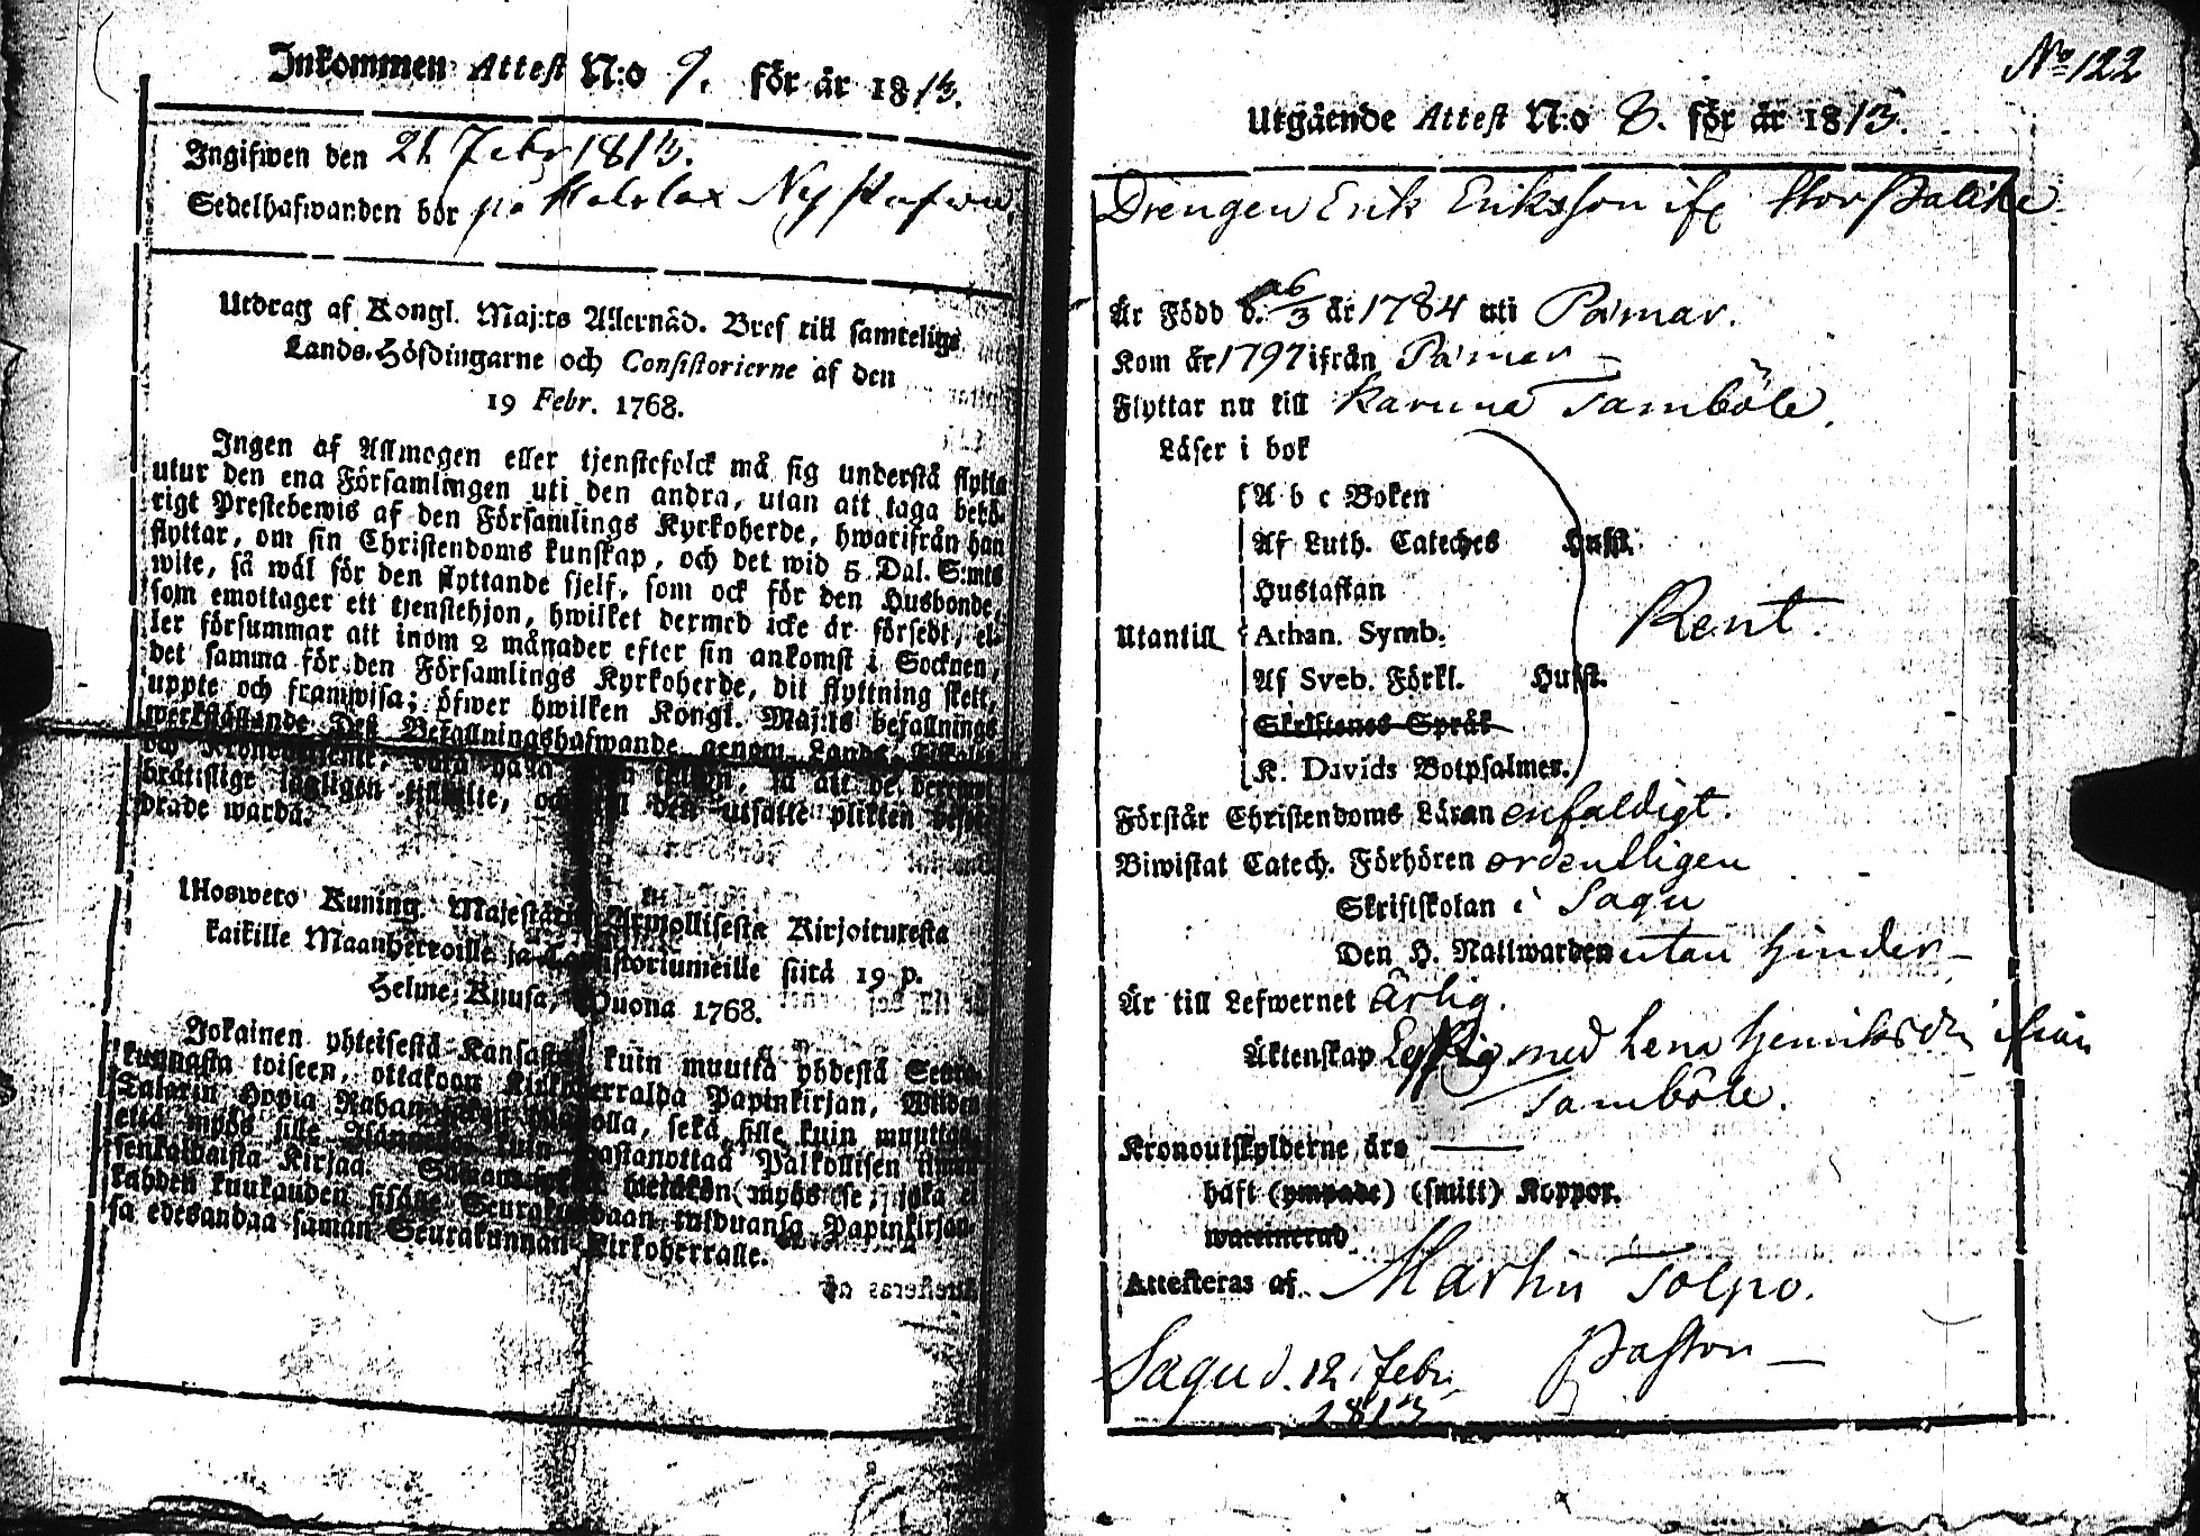 Inkommen Attest N:o 9. för år 1813.
Ingifwen den 21 Febr 1813.
Sedelhafwanden bor på
Utdrag af Kongl. Maj:ts Allernåd. Bref till samtelige
Lands-Höfdingarne och Consistorierne af den
19 Febr. 1768.
Ingen af Allmogen eller tjenstefolck må sig understå flytta
utur den ena Församlingen uti den andra, utan att taga behö-
rigt Prestebewis af den Församlings Kyrkoherde, hwarifrån han
flyttar, om sin Christendoms kunskap, och det wid 5 Dal. S:mts
wite, så wäl för den flyttande sjelf, som ock för den Husbonde,
som emottager ett tjenstehjon, hwilket dermed icke är försedt, el-
ler försummar att inom 2 månader efter sin ankomst i Socknen,
det samma för den Församlings Kyrkoherde, dit flyttning skett,
uppte och framwisa; öfwer hwilken Kongl. Maj:ts befallnings
werkställande Dess Befallningshafwande genom Lands-
så att de, deremot
brätslige lagligen och den utsatte plikten
drade warda.
Uloswero Kuning. Majestätin Armollisesta Kirjoituxesta
kaikille Maanherroille ja Consistoriumeille siitä 19 p.
Helme-Kuusa, Wuona 1768.
Jokainen yhteisestä Kansasta, kuin muutta yhdestä Seura-
kunnasta toiseen, ottakoon Kirkkoherralda Papinkirjan, Wiiden
Talarin Hopia Rahan sakon uholla, sekä sille kuin muuttaa,
että myös sille Isännälle kuin wastanottaa Palkollisen ilman
senkaltaista Kirjaa. myös se, joka ei
kahden kuukauden sisälle Seurakundaan tulduansa, Papinkirjan-
sa edesandaa saman Seurakunnan Kirkoherralle.
No 122
Utgående Attest N:o 8. för år 1813.
Drengen Erik Eriksson ifr Stor Palike
Är Född d. 26/3 år 1784 uti Pämar.
Kom år 1797 ifrån Pämar
Flyttar nu till Karuna Tamböle.
Läser i bok
A b c Boken
Af Luth. Cateches Husst.
Hustaflan
Utantill Athan. Symb. Rent.
Af Sveb. Förkl. Husst.
Skriftenes Språk
K. Davids Botpsalmer.
Förstår Christendoms Läran enfaldigt.
Biwistat Catech. Förhören ordentligen
Skriftskolan i Sagu
Den H. Nattwarden utan hinder
Är till Lefwernet Ärlig.
Äktenskap Ledig med Lena Henriksdr ifrån
Tamböle.
Kronoutskylderne äro
haft (ympade) (smitt) Koppor.
waccinerad.
Attesteras af Martin Tolpo.
Sagu d. 12 Febr. Pastor
1813